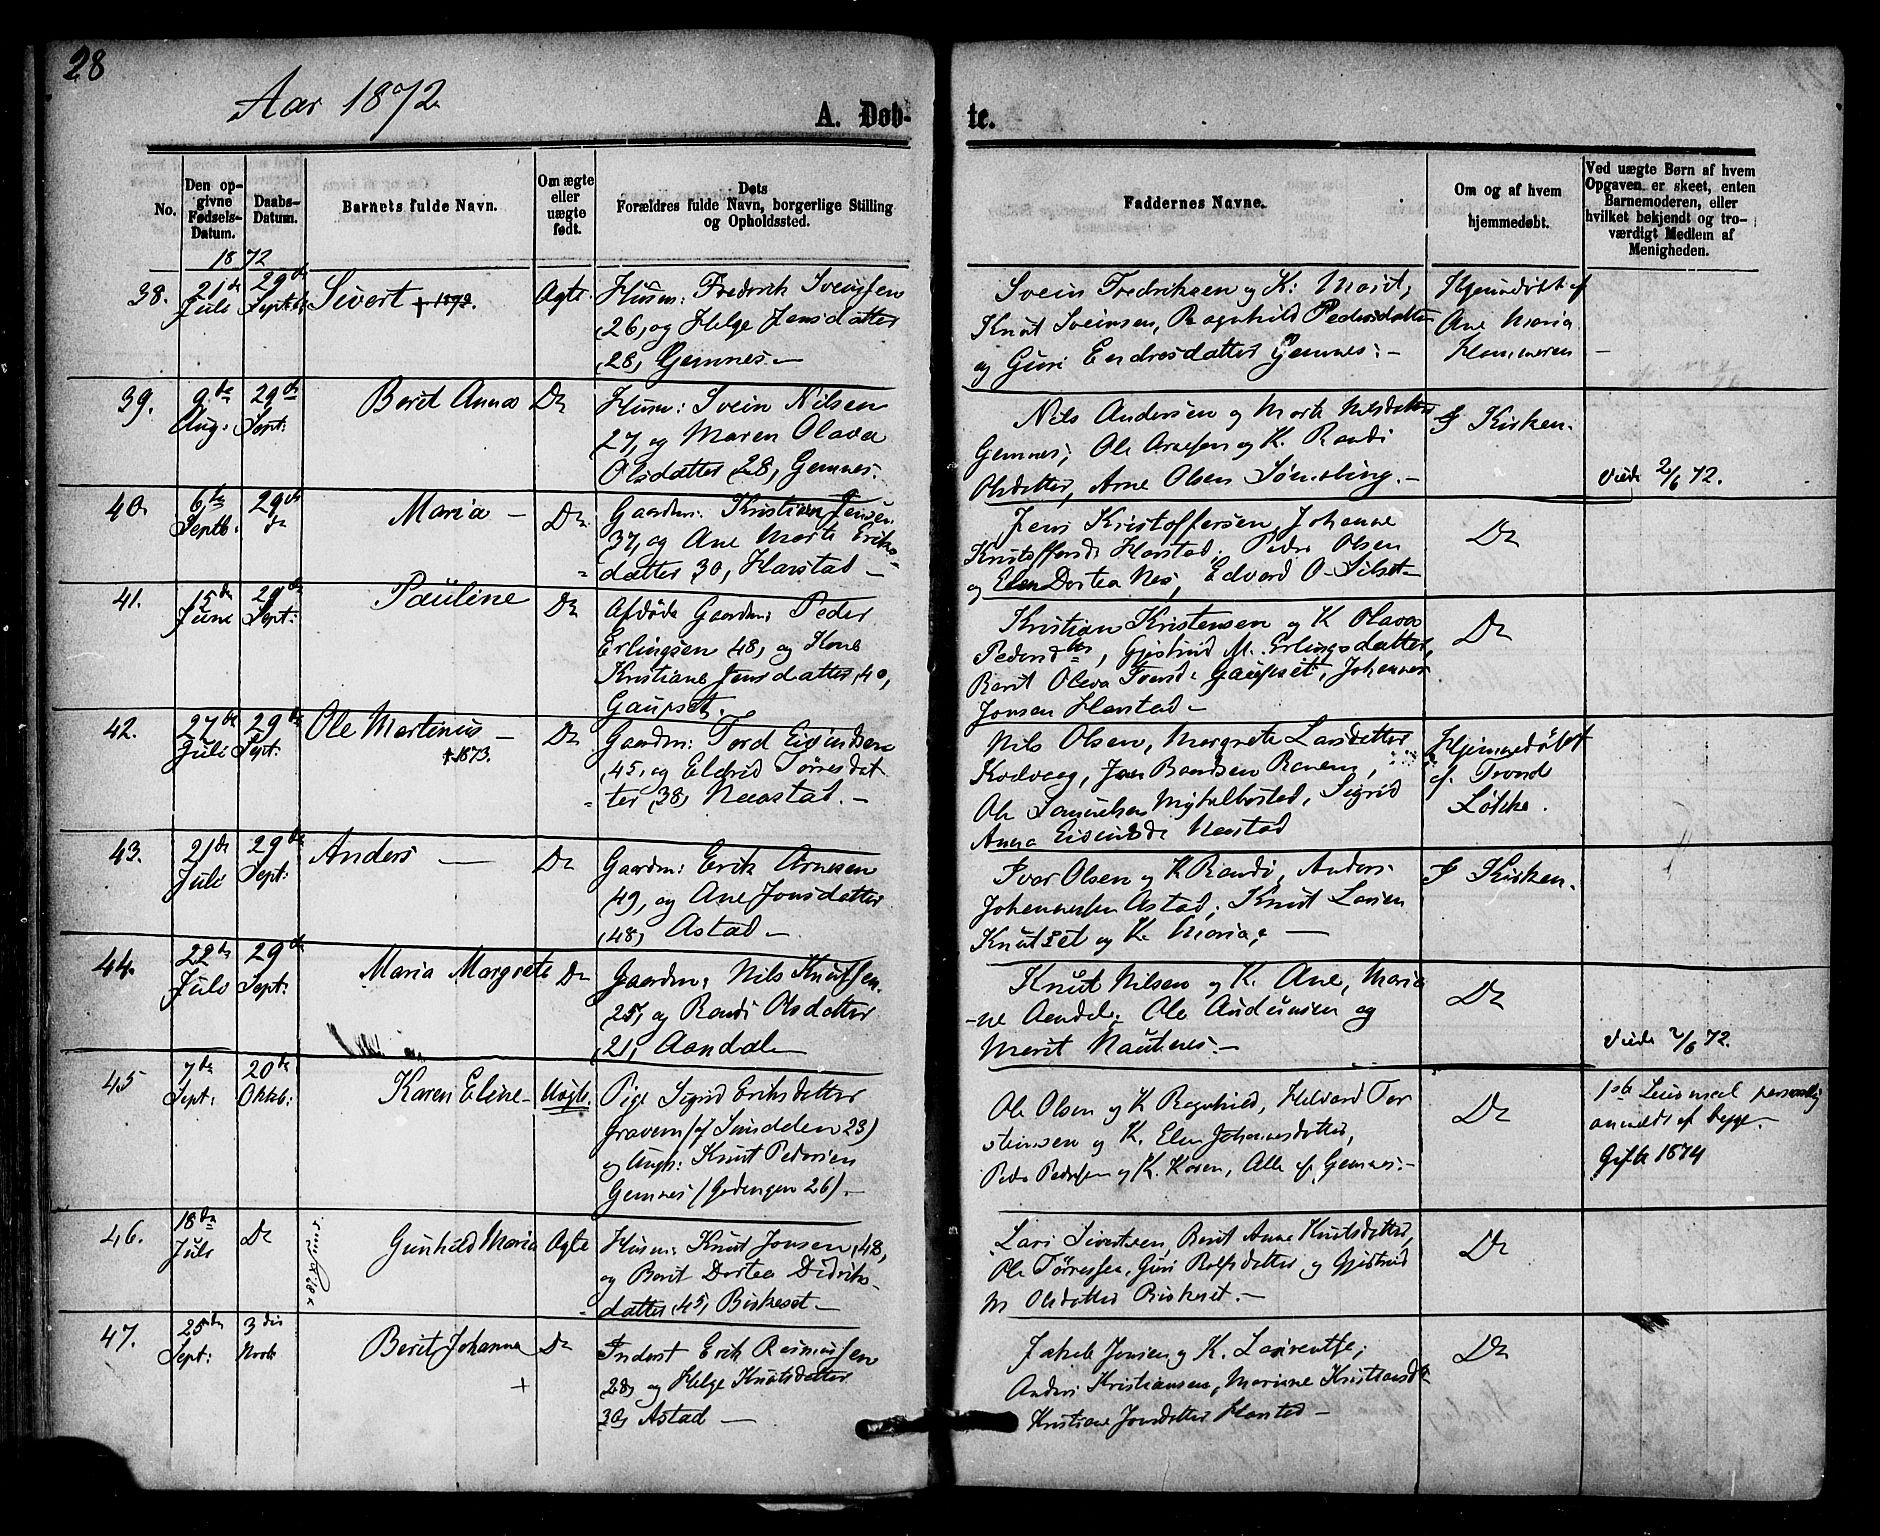 28
Aar 1872
A. Døb-
te.
No.
Den op-
givne
Fødsels-
Datum.
Daabs-
Datum.
Barnets fulde Navn.
Om ægte
eller
uægte
født.
Dets
Forældres fulde Navn, borgerlige Stilling
og Opholdssted.
Faddernes Navne.
Om og af hvem
hjemmedøbt.
Ved uægte Børn af hvem
Opgaven er skeet, enten
Barnemoderen, eller
hvilket bekjendt og tro-
værdigt Medlem af
Menigheden.
1872
38.
21de
Juli
29de
Sept:
Sivert + 1872.
Ægte.
Husm: Fredrik Sveinsen
26, og Helge Jensdatter
28, Gemnes.-
Svein Fredriksen og K: Marit,
Knut Sveinsen, Ragnhild Pedersdatter
og Guri Endresdatter Gemnes:-
Hjemmedøbt af
Ane Maria
Hammeren
39.
9de
Aug.
29de
Sept:
Berit Anna
Do
Husm: Svein Nilsen
27, og Maren Olava
Olsdatter 28, Gemnes.
Nils Andersen og Marit Nilsdatter
Gemnes, Ole Arnesen og K. Randi
Olsdatter, Arne Olsen
I Kirken.
Viede 2/6 72.
40.
6te
Septb.
29de
do
Maria -
Do
Gaardm: Kristian Jensen
37, og Ane Marta Eriks-
datter 30, Harstad -
Jens Kristoffersen, Johanne
Harstad, Peder Olsen
og Elen Dortea Nes, Edvard O. Silset -
Do
41.
15de
June
29de
Sept:
Pauline
Do
Afdøde Gaardm: Peder
Erlingsen 48, og Kone
Kristiane Jensdatter, 40,
Gaupset.
Kristian Kristensen og K Olava
Pedersdtr, Gjertrud M. Erlingsdatter,
Berit Oleva Gaupset, Johannes
Jonsen Harstad -
Do
42.
27de
Juli
29de
Sept:
Ole Martinus -
+1873.
Do
Gaardm: Tord Eivindsen
45, og Eldrid Tørresdat
ter 38, Naastad.-
Nils Olsen, Margrete Larsdatter
Kodvaag, Baardsen
Ole Samuelsen Sigrid
Anna Eivindsd. Naastad
Hjemmedøbt
af Trond
Løkke.
43.
21de
Juli
29de
Sept:
Anders -
Do
Gaardm: Erik Arnesen
49, og Ane Jonsdatter
48, Astad -
Ivar Olsen og K Randi, Anders
Johannessen Astad, Knut Larsen
Knutset og K. Maria. -
I Kirken.
44.
22de
Juli
29de
Sept:
Maria Margrete
Do
Gaardm: Nils Knutsen
25, og Randi Olsdatter
21, Aandal
Knut Nilsen og K. Ane, Maria
Ole Audunsen og
Marit Nautnes.-
Do
Viede 2/6 72.
45
7de
Sept:
20de
Oktob:
Karen Eline -
Uægte.
Pige Sigrid Eriksdatter
Gravem (af Sundalen 23)
og Ungk: Knut Pedersen
Gemnes (Gedingen 26).-
Ole Olsen og K Ragnhild, Halvard Tor
steinsen og K. Elen Johannesdatter,
Peder Pedersen og K. Karen, Alle af Gemnes.-
Do
1ste Leiermaal personlig
anmeldt af begge.-
Gifte 1874
46.
18de
Juli
Do
Gunhild Maria
Ægte
Husm: Knut Jonsen, 48,
og Berit Dortea Didriks-
datter, 45, Biskeset -
Lars Sivertsen, Berit Anne Knutsdatter,
Ole Tørresen, Guri Rolfsdatter og Gjertrud
M Olsdatter Biskeset.-
Do
47.
25de
Sept:
3die
Novb
Berit Johanna
+
Do
Inderst Erik Rasmussen
28, og Helge Knutsdatter
30, Astad -
Jakob Jonsen og K. Laurentse,
Anders Kristiansen, Mariane Kristiansd
Kristiane Jonsdatter Harstad -
Do